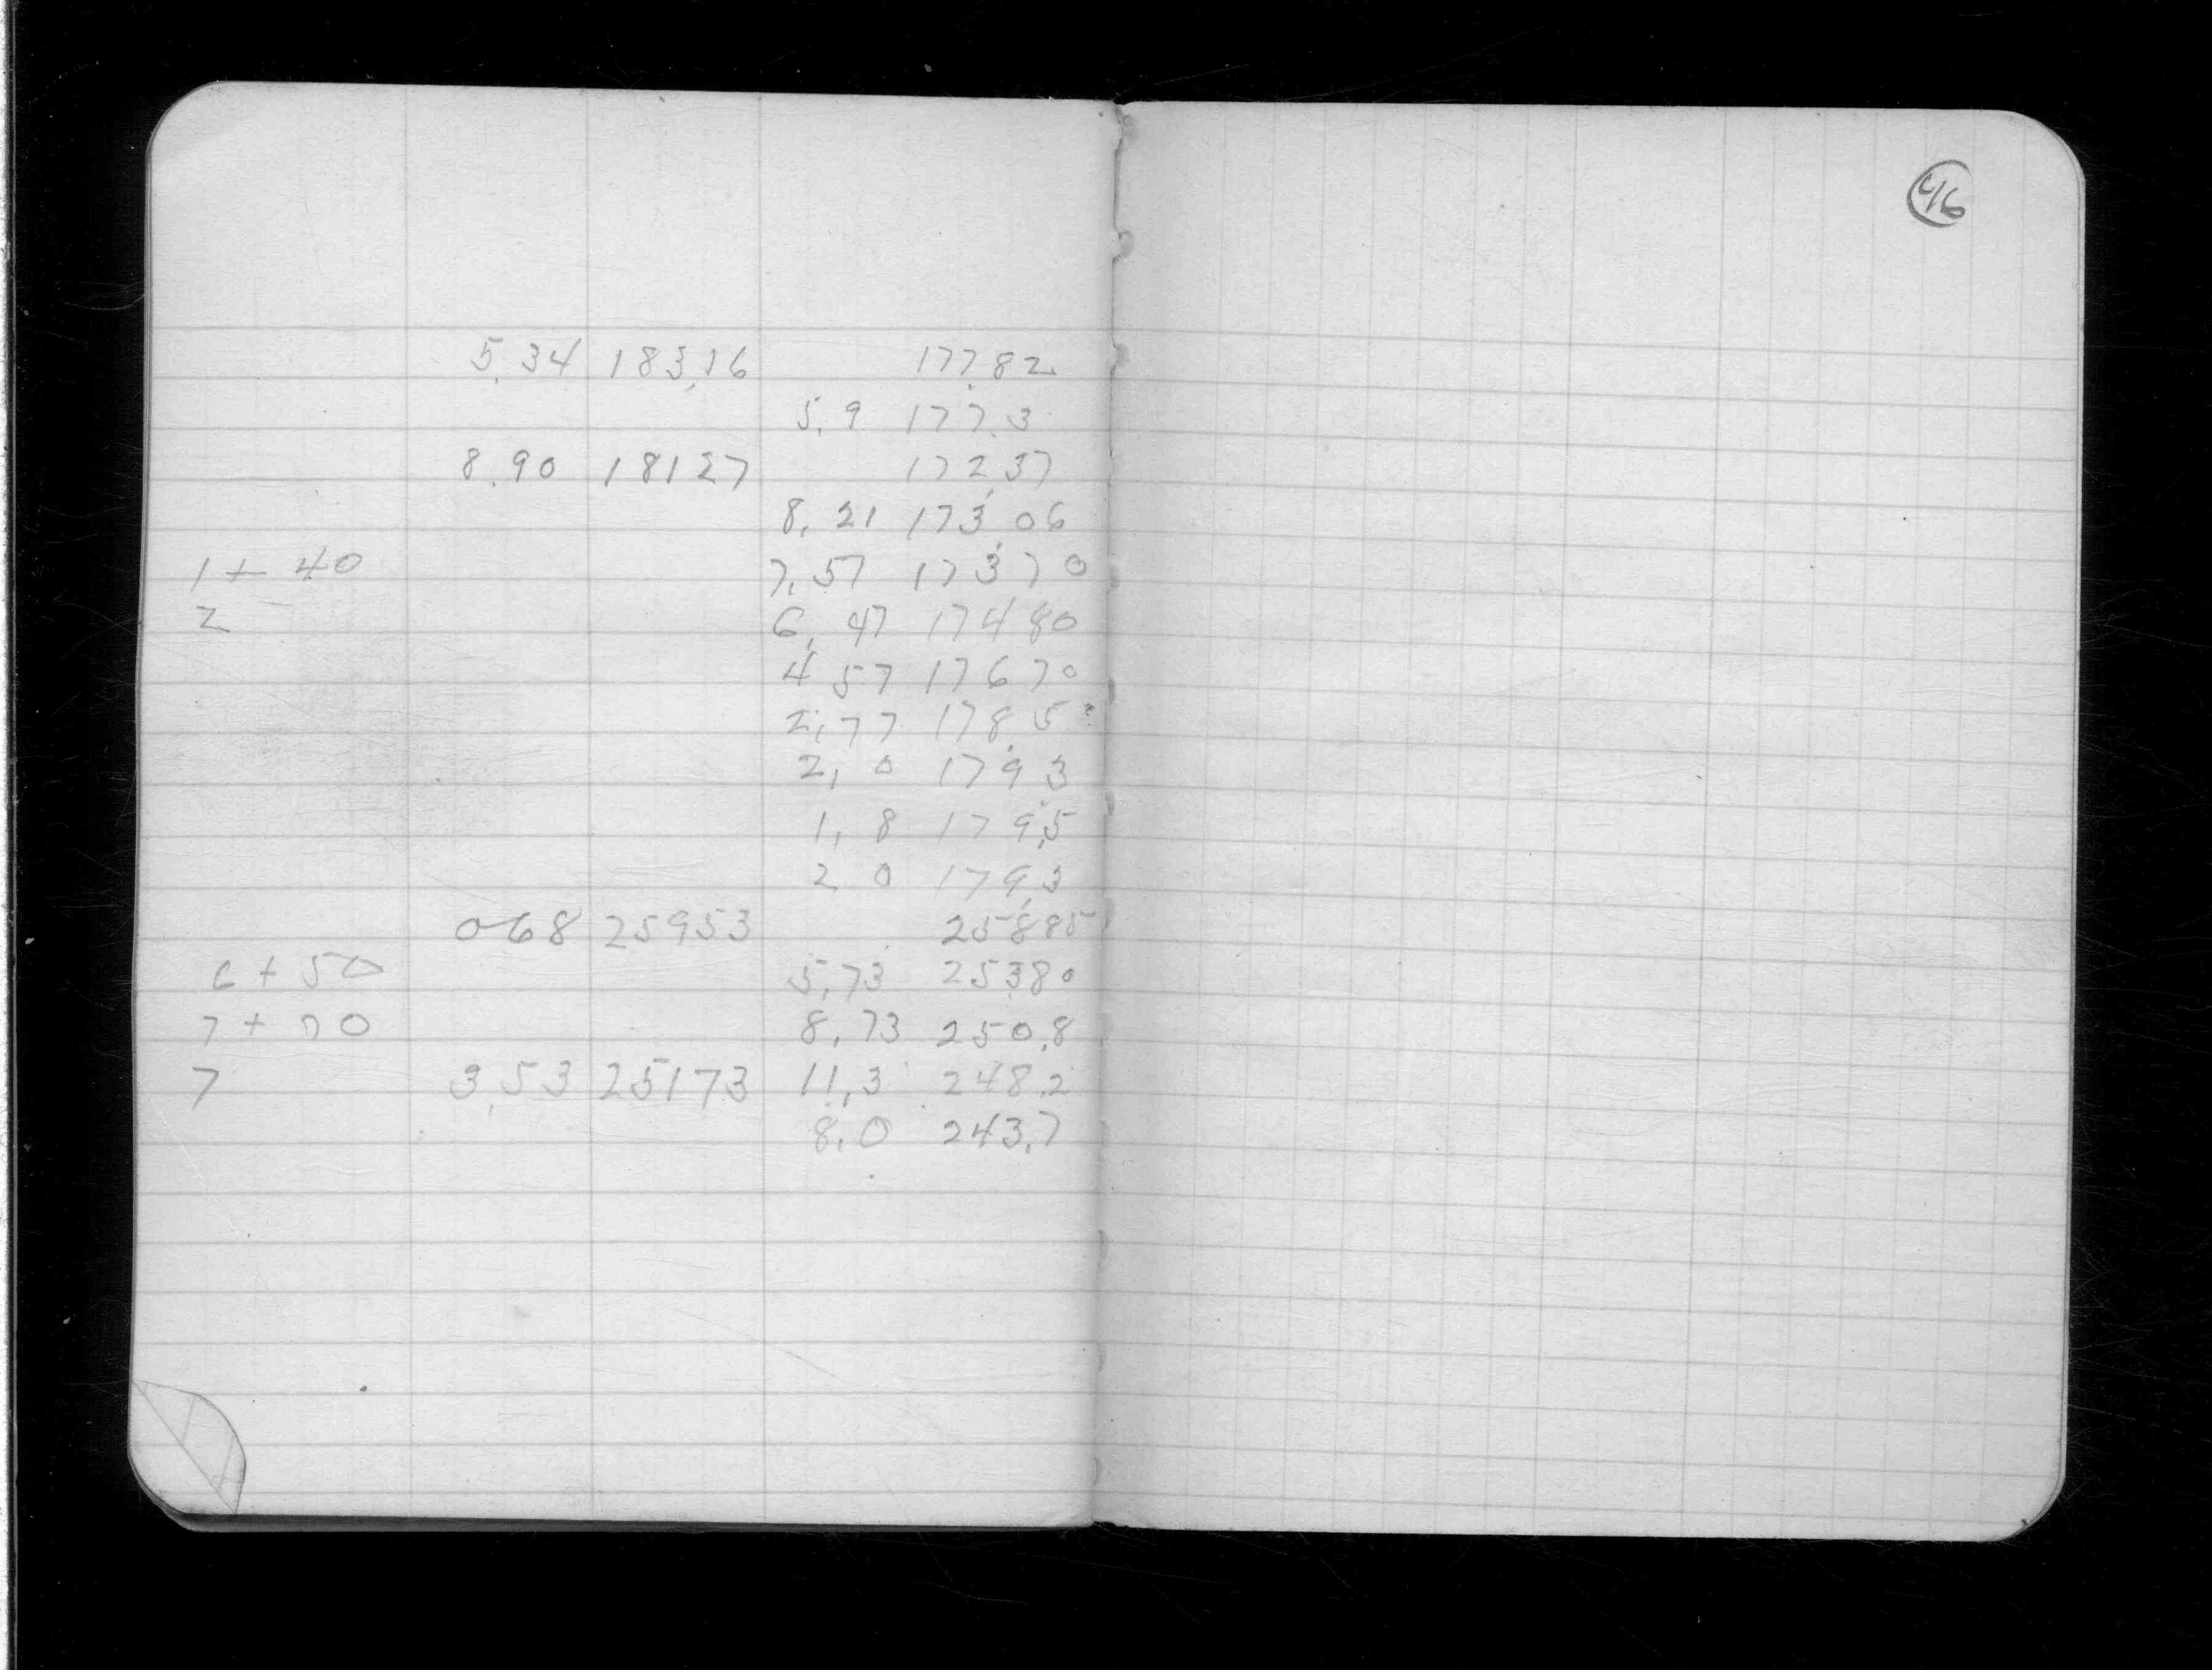 5.34 183,16 177.82
5,9 177.3
8.90 18127 172,37
8,21 173,06
1+ 40 7,57 17370
2 6,47 17480
4 57 17670
2,77 178.5
2,0 179.3
1,8 179,5
2 0 179,3
068 25953 25885
6 + 50 5,73 25380
7 + 70 8,73 250,8
7 3,53 25173 11,3 248.2
8.0 243,7
46